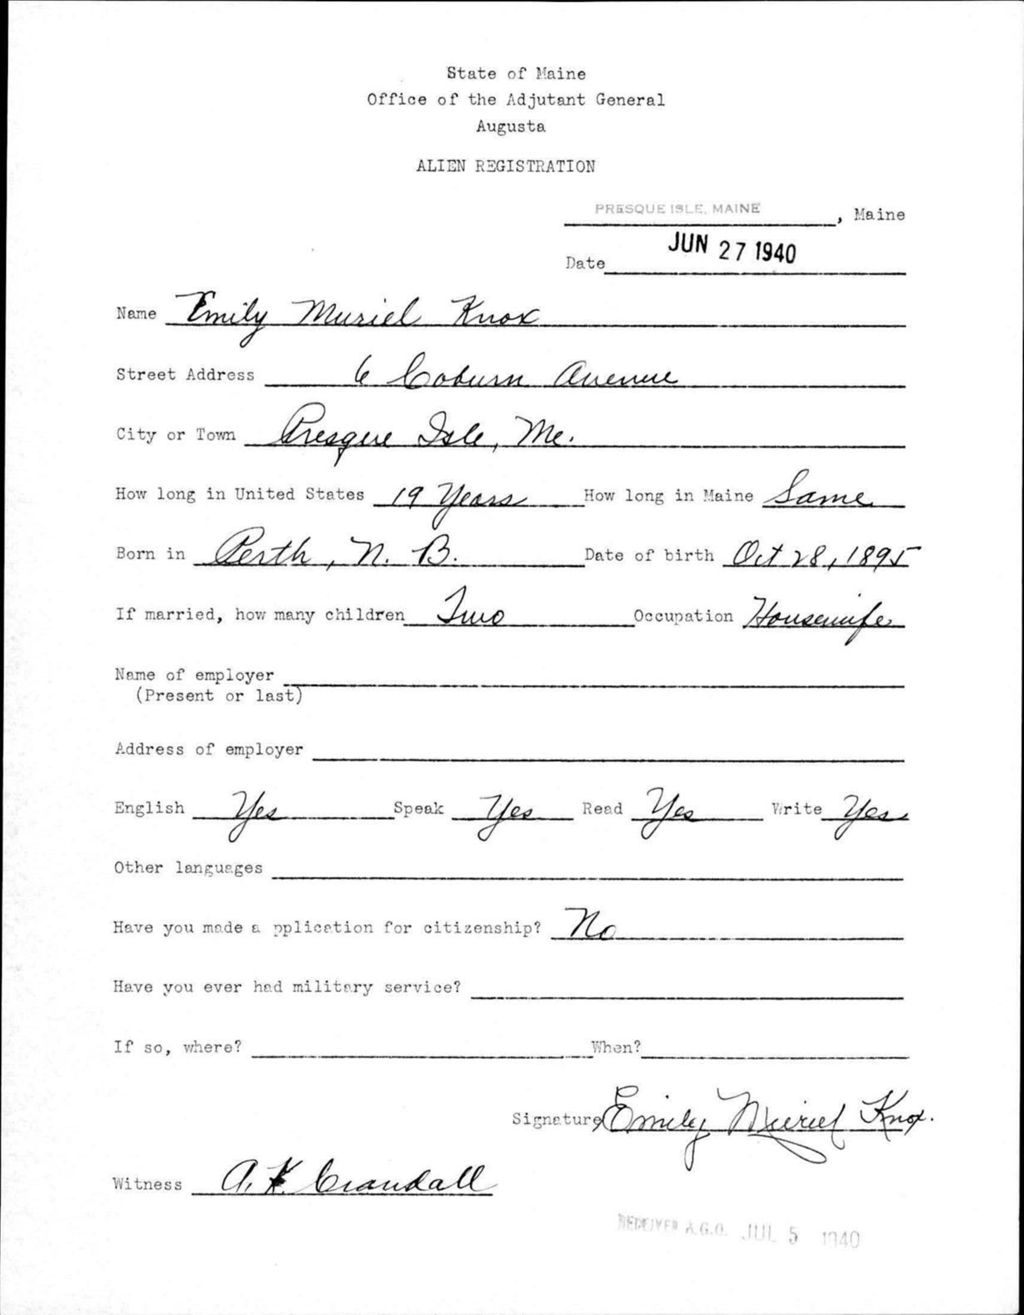 State of Maine
Office of the Adjutant General
Augusta
ALIEN REGISTRATION
PRESQUE ISLE, MAINE, Maine
Date JUN 27 1940
Name Emily Muriel Knox
Street Address 6 Coburn Avenue
City or Town Presque Isle, Me.
How long in United States 19 Years How long in Maine Same
Born in Perth, N. B. Date of birth Oct 28, 1895
If married, how many children Two Occupation Housewife
Name of employer
(Present or last)
Address of employer
English Yes Speak Yes Read Yes Write Yes
Other languages
Have you made a pplication for citizenship? No
Have you ever had military service?
If so, where? When?
Signature Emily Muriel Knox.
Witness A. K. Crandall
RECEIVED A.G.O. JUL 5 1940